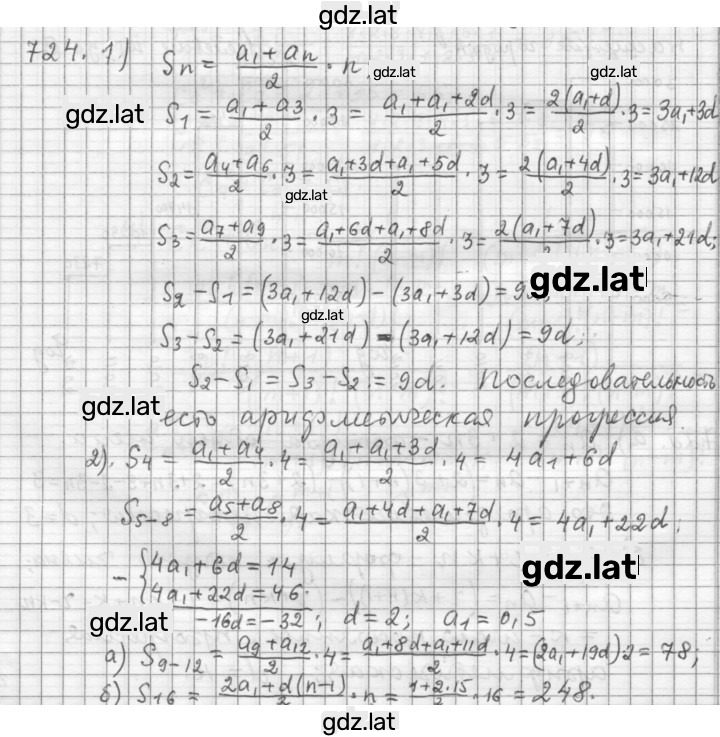 gdz.lat
724. 1) Sn = (a₁ + an)/2 · n, gdz.lat gdz.lat
gdz.lat S₁ = (a₁ + a₃)/2 · 3 = (a₁ + a₁ + 2d)/2 · 3 = 2(a₁+d)/2 · 3 = 3a₁+3d
S₂ = (a₄+a₆)/2 · 3 = (a₁+3d+a₁+5d)/2 · 3 = 2(a₁+4d)/2 · 3 = 3a₁+12d
gdz.lat
S₃ = (a₇+a₉)/2 · 3 = (a₁+6d+a₁+8d)/2 · 3 = 2(a₁+7d)/2 · 3 = 3a₁+21d;
gdz.lat
S₂ − S₁ = (3a₁+12d) − (3a₁+3d) = 9d;
gdz.lat
S₃ − S₂ = (3a₁+21d) − (3a₁+12d) = 9d;
S₂ − S₁ = S₃ − S₂ = 9d. Последовательность
gdz.lat
есть арифметическая прогрессия.
2). S₄ = (a₁ + a₄)/2 · 4 = (a₁ + a₁ + 3d)/2 · 4 = 4a₁ + 6d
S₅₋₈ = (a₅+a₈)/2 · 4 = (a₁+4d+a₁+7d)/2 · 4 = 4a₁+22d;
− { 4a₁+6d = 14
gdz.lat
4a₁+22d = 46.
gdz.lat −16d = −32; d = 2; a₁ = 0,5
а) S₉₋₁₂ = (a₉+a₁₂)/2 · 4 = (a₁+8d+a₁+11d)/2 · 4 = (2a₁+19d)·2 = 78;
б) S₁₆ = (2a₁+d(n−1))/2 · n = (1+2·15)/2 · 16 = 248.
gdz.lat